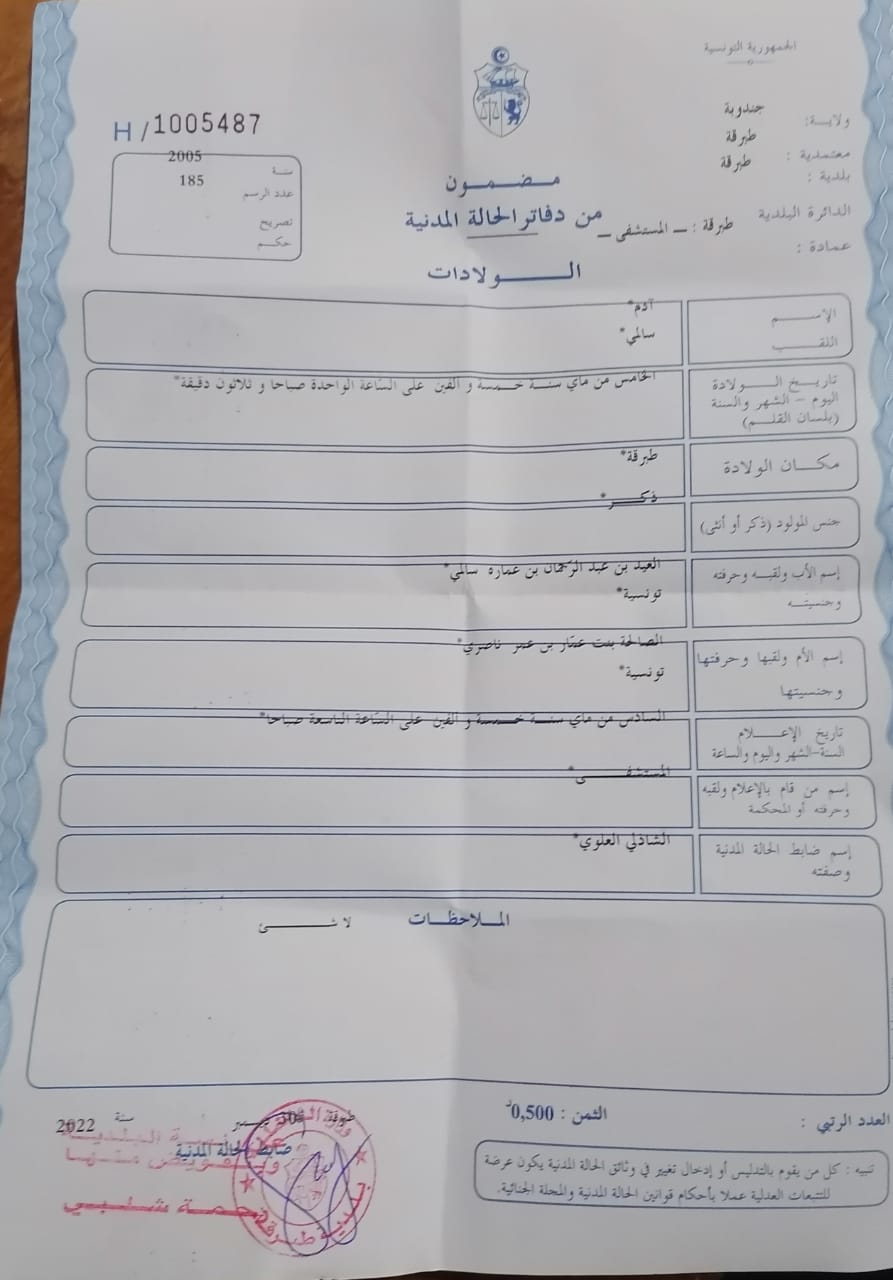 الجمهورية التونسية
ولاية: جندوبة
معتمدية: طبرقة
بلدية: طبرقة
الدائرة البلدية طبرقة: - المستشفى -
عمادة:
H/1005487
سنة 2005
عدد الرسم 185
تصريح
حكم
مضمون
من دفاتر الحالة المدنية
الولادات
الإسم آدم*
اللقب سالمي*
تاريخ الولادة الخامس من ماي سنة خمسة و ألفين على الساعة الواحدة صباحا و ثلاثون دقيقة*
اليوم - الشهر والسنة
(بلسان القلم)
مكان الولادة طبرقة*
جنس المولود (ذكر أو أنثى) ذكر*
إسم الأب ولقبه وحرفته العيد بن عبد الرحمان بن عمارة سالمي*
وجنسيته تونسية*
إسم الأم ولقبها وحرفتها الصالحة بنت عمار بن عمر ناصري*
وجنسيتها تونسية*
تاريخ الإعلام السادس من ماي سنة خمسة و ألفين على الساعة التاسعة صباحا*
السنة-الشهر واليوم والساعة
إسم من قام بالإعلام ولقبه المستشفى*
وحرفته أو المحكمة
إسم ضابط الحالة المدنية الشاذلي العلوي*
وصفته
الملاحظات لا شئ
العدد الرتبي :
الثمن : 0,500د
طبرقة 30 سنة 2022
ضابط الحالة المدنية
بلدية طبرقة
تنبيه : كل من يقوم بالتدليس أو إدخال تغيير في وثائق الحالة المدنية يكون عرضة
للتتبعات العدلية عملا بأحكام قوانين الحالة المدنية والمجلة الجنائية.